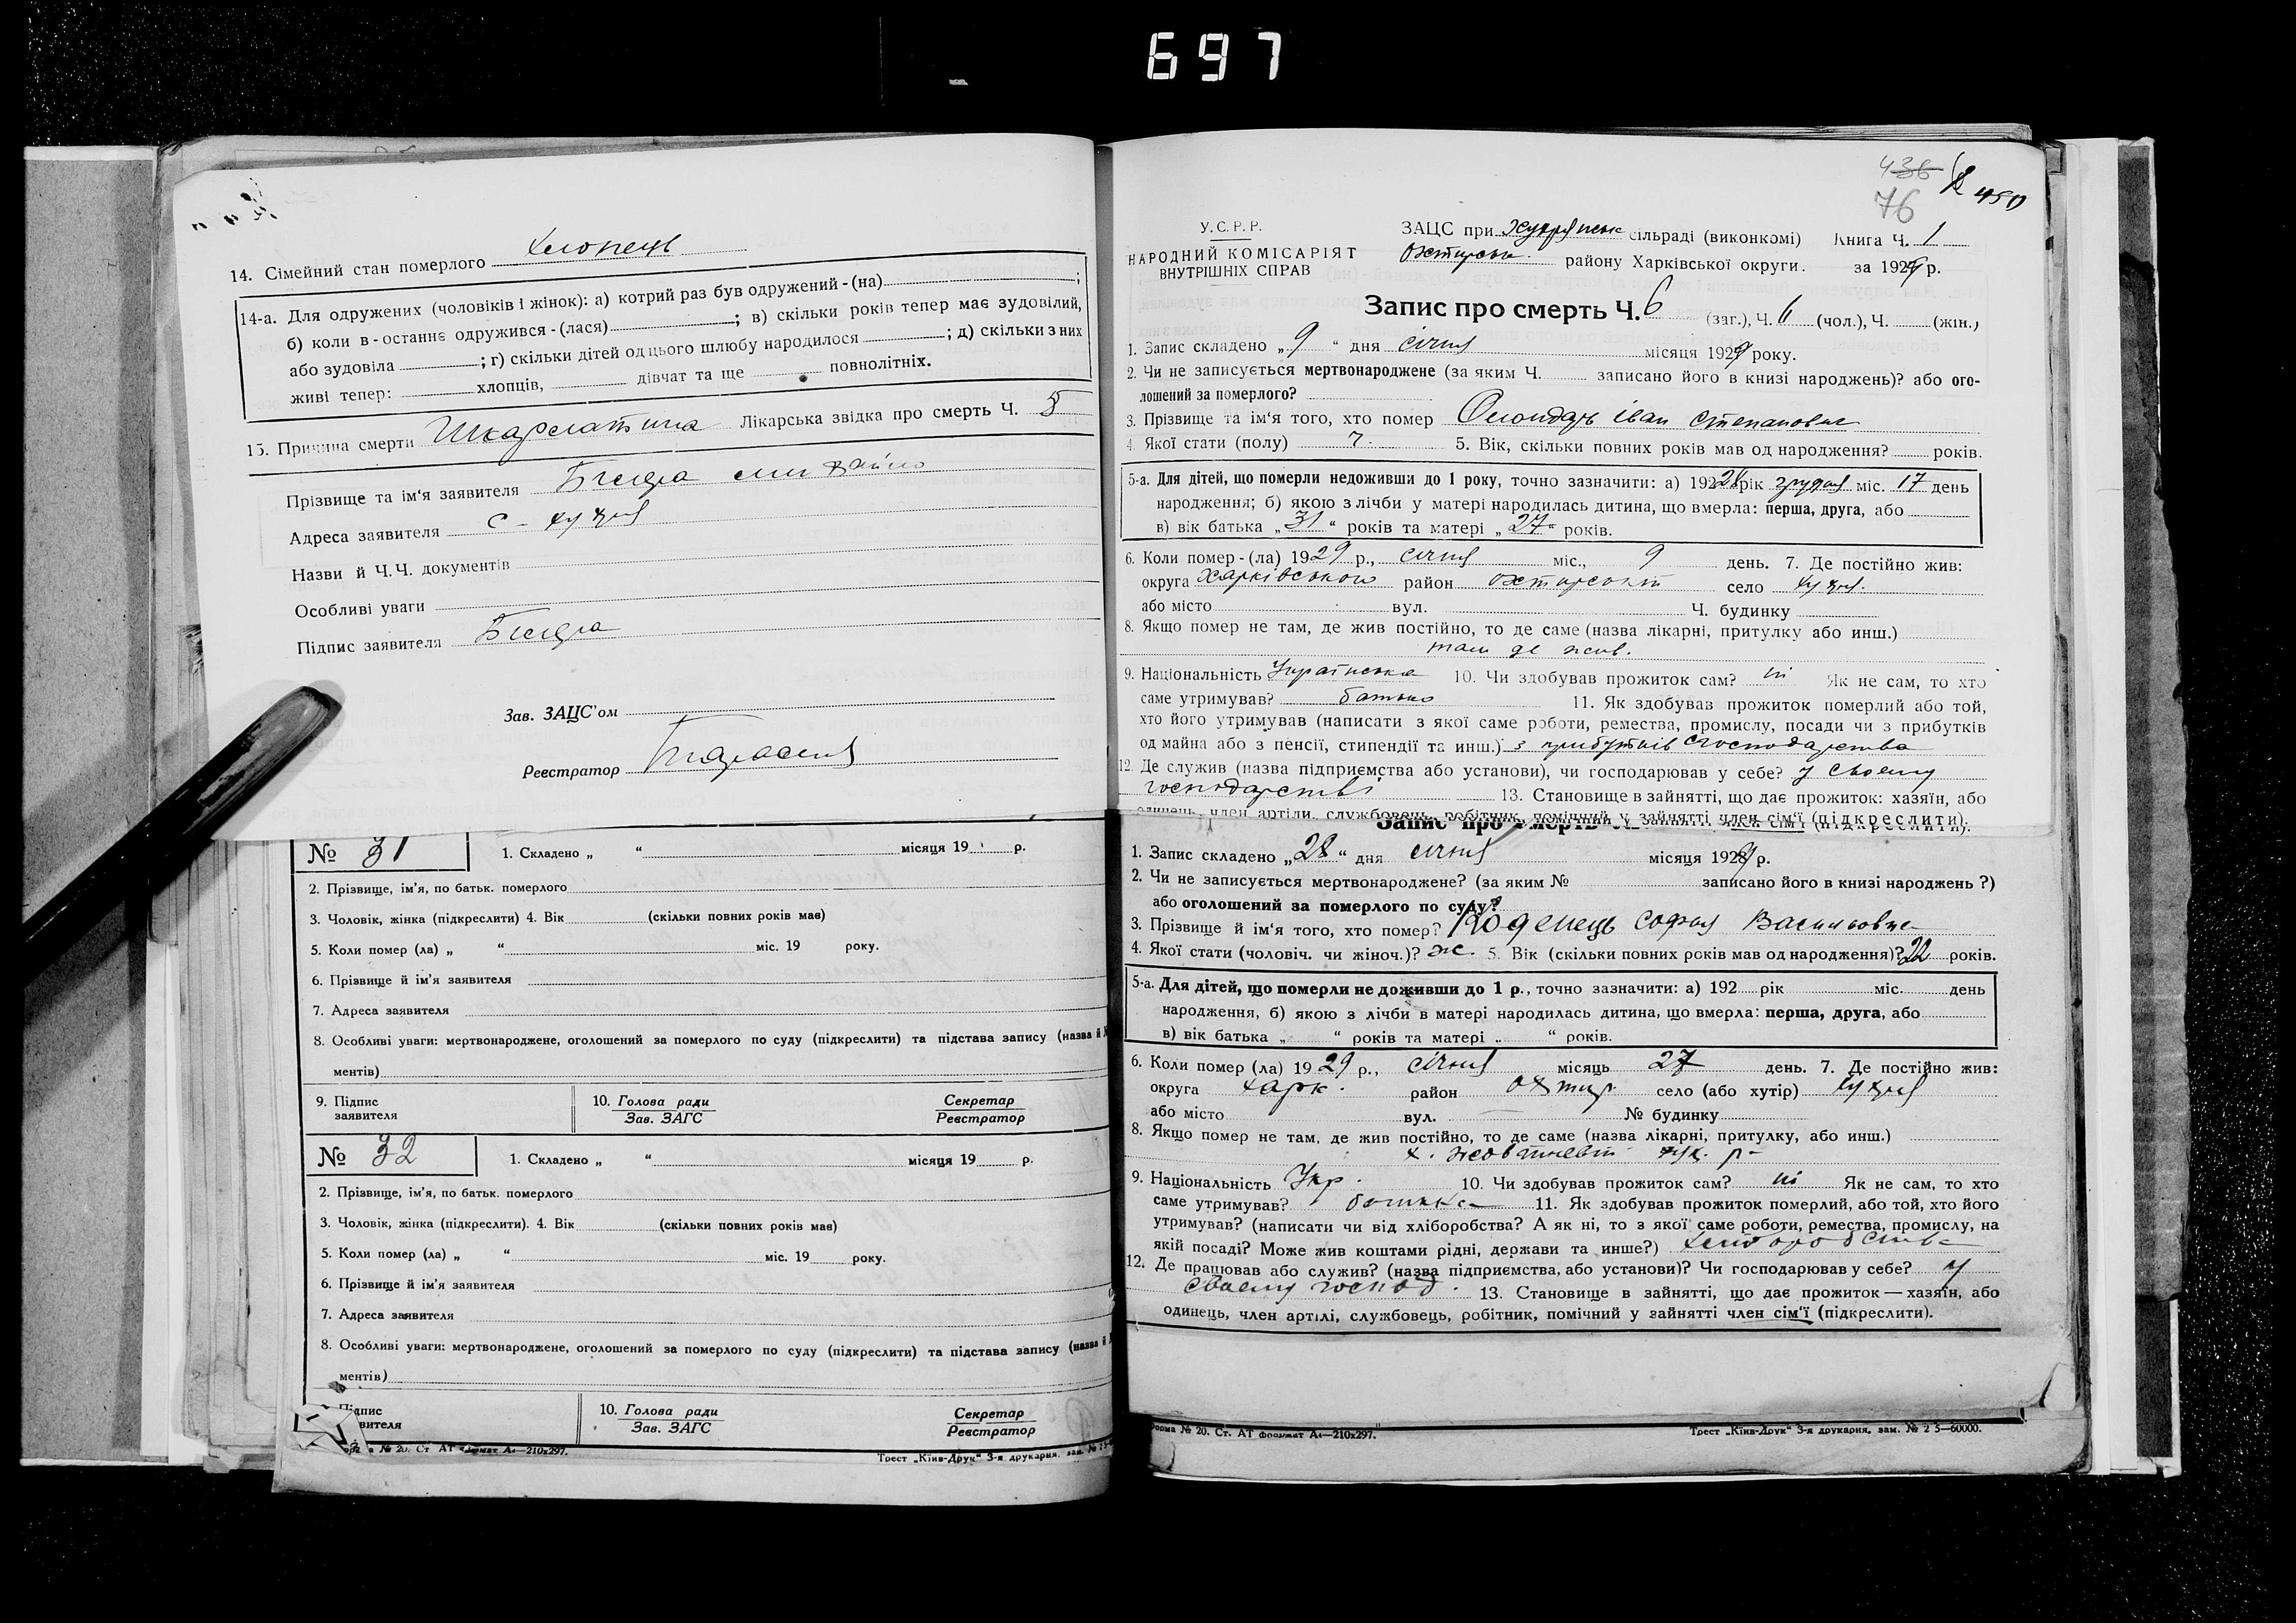 697
14. Сімейний стан померлого хлопець
14-а. Для одружених (чоловіків і жінок): а) котрий раз був одружений-(на) ;
б) коли в-останнє одружився-(лася) ; в) скільки років тепер має зудовілий,
або зудовіла ; г) скільки дітей од цього шлюбу народилося ; д) скільки з них
живі тепер: хлопців, дівчат та ще повнолітніх.
15. Причина смерти Шкарлатина Лікарська звідка про смерть Ч. 5
Прізвище та ім'я заявителя
Адреса заявителя с-
Назви й Ч.Ч. документів
Особливі уваги
Підпис заявителя
Зав. ЗАЦС'ом
Реєстратор
№ 31 1. Складено „ “ місяця 19 р.
2. Прізвище, ім'я, по батьк. померлого
3. Чоловік, жінка (підкреслити) 4. Вік (скільки повних років має)
5. Коли помер (ла) „ “ міс. 19 року.
6. Прізвище й ім'я заявителя
7. Адреса заявителя
8. Особливі уваги: мертвонароджене, оголошений за померлого по суду (підкреслити) та підстава запису (назва й
ментів)
9. Підпис заявителя 10. Голова ради Секретар
Зав. ЗАГС Реєстратор
№ 32 1. Складено „ “ місяця 19 р.
2. Прізвище, ім'я, по батьк. померлого
3. Чоловік, жінка (підкреслити). 4. Вік (скільки повних років має)
5. Коли помер (ла) „ “ міс. 19 року.
6. Прізвище й ім'я заявителя
7. Адреса заявителя
8. Особливі уваги: мертвонароджене, оголошений за померлого по суду (підкреслити) та підстава запису (назва й
ментів)
10. Голова ради Секретар
Зав. ЗАГС Реєстратор
№ 20. Ст. АТ формат А4—210х297. Трест „Київ-Друк“ 3-я друкарня, зам. № 2 5
436
76
450
У.С.Р.Р. ЗАЦС при сільраді (виконкомі) Книга Ч. 1
НАРОДНИЙ КОМІСАРІЯТ ВНУТРІШНІХ СПРАВ району Харківської округи. за 1929 р.
Запис про смерть Ч. 6 (заг.), Ч. 6 (чол.), Ч. (жін.)
1. Запис складено „9“ дня січня місяця 1929 року.
2. Чи не записується мертвонароджене (за яким Ч. записано його в книзі народжень)? або ого-
лошений за померлого?
3. Прізвище та ім'я того, хто помер Іван Степанович
4. Якої стати (полу) ч. 5. Вік, скільки повних років мав од народження? років.
5-а. Для дітей, що померли недоживши до 1 року, точно зазначити: а) 1928 рік грудня міс. 17 день
народження; б) якою з лічби у матері народилась дитина, що вмерла: перша, друга, або
в) вік батька „31“ років та матері „27“ років.
6. Коли помер-(ла) 1929 р., січня міс., 9 день. 7. Де постійно жив:
округа Харківської район село
або місто вул. Ч. будинку
8. Якщо помер не там, де жив постійно, то де саме (назва лікарні, притулку або инш.)
там де жив.
9. Національність Українська 10. Чи здобував прожиток сам? ні Як не сам, то хто
саме утримував? батько 11. Як здобував прожиток померлий або той,
хто його утримував (написати з якої саме роботи, ремества, промислу, посади чи з прибутків
од майна або з пенсії, стипендії та инш.) з прибутків господарства
12. Де служив (назва підприємства або установи), чи господарював у себе? у своему
господарстві 13. Становище в зайнятті, що дає прожиток: хазяїн, або
одинець, член артіли, службовець, робітник, помічний у зайнятті член сім'ї (підкреслити).
Запис про смерть
1. Запис складено „28“ дня січня місяця 1929 р.
2. Чи не записується мертвонароджене? (за яким № записано його в книзі народжень?)
або оголошений за померлого по суду?
3. Прізвище й ім'я того, хто помер? София Васильовна
4. Якої стати (чоловіч. чи жіноч.)? ж. 5. Вік (скільки повних років мав од народження)? 22 років.
5-а. Для дітей, що померли не доживши до 1 р., точно зазначити: а) 192 рік міс. день
народження, б) якою з лічби в матері народилась дитина, що вмерла: перша, друга, або
в) вік батька „ “ років та матері „ “ років.
6. Коли помер (ла) 1929 р., січня місяць 27 день. 7. Де постійно жив:
округа Харк. район Охтир. село (або хутір)
або місто вул. № будинку
8. Якщо помер не там, де жив постійно, то де саме (назва лікарні, притулку, або инш.)
9. Національність Укр. 10. Чи здобував прожиток сам? ні Як не сам, то хто
саме утримував? 11. Як здобував прожиток померлий, або той, хто його
утримував? (написати чи від хліборобства? А як ні, то з якої саме роботи, ремества, промислу, на
якій посаді? Може жив коштами рідні, держави та инше?) хліборобства
12. Де працював або служив? (назва підприємства, або установи)? Чи господарював у себе? у
своему господ. 13. Становище в зайнятті, що дає прожиток — хазяїн, або
одинець, член артілі, службовець, робітник, помічний у зайнятті член сім'ї (підкреслити).
Форма № 20. Ст. АТ формат А4—210х297. Трест „Київ-Друк“ 3-я друкарня, зам. № 2 5—60000.